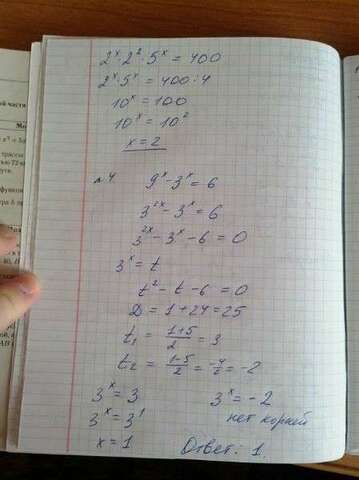 2ˣ · 2² · 5ˣ = 400
2ˣ · 5ˣ = 400 : 4
10ˣ = 100
10ˣ = 10²
x = 2
№4 9ˣ - 3ˣ = 6
3²ˣ - 3ˣ = 6
3²ˣ - 3ˣ - 6 = 0
3ˣ = t
t² - t - 6 = 0
D = 1 + 24 = 25
t₁ = (1+5)/2 = 3
t₂ = (1-5)/2 = -4/2 = -2
3ˣ = 3 3ˣ = -2
3ˣ = 3¹ нет корней
x = 1 Ответ: 1.